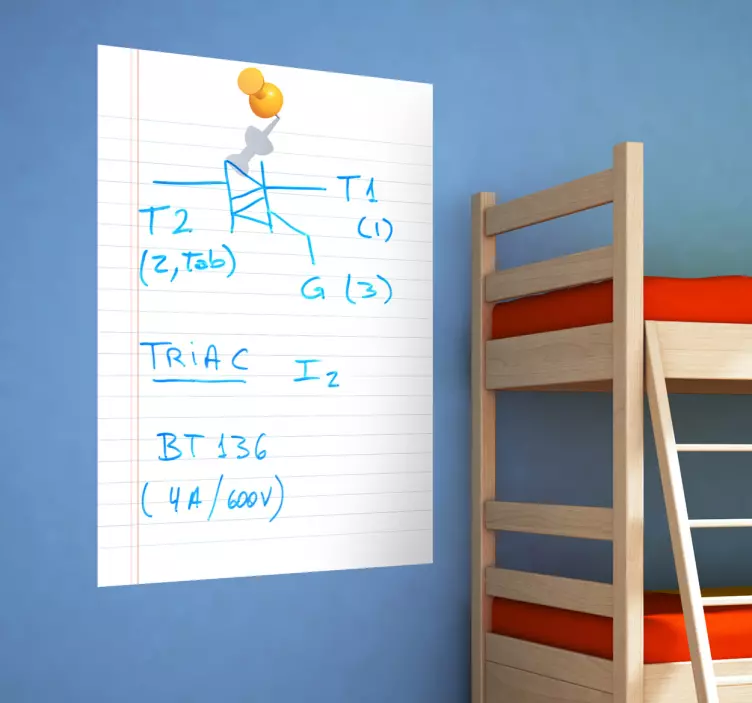 T1
T2 (1)
(2, Tab)
G (3)
TRIAC I2
BT 136
(4A/600V)